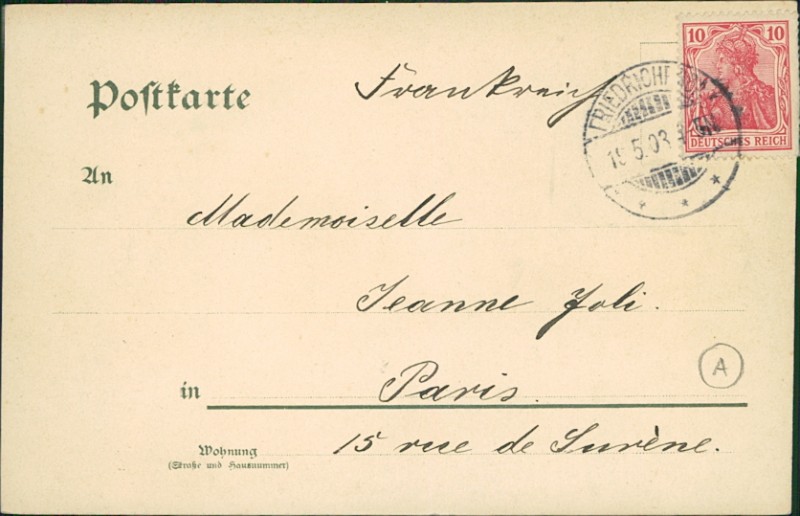 10 10
DEUTSCHES REICH
Postkarte
Frankreich
5.03
An
Mademoiselle
Jeanne Joli.
A
in Paris.
Wohnung
(Straße und Hausnummer)
15 rue de Surène.